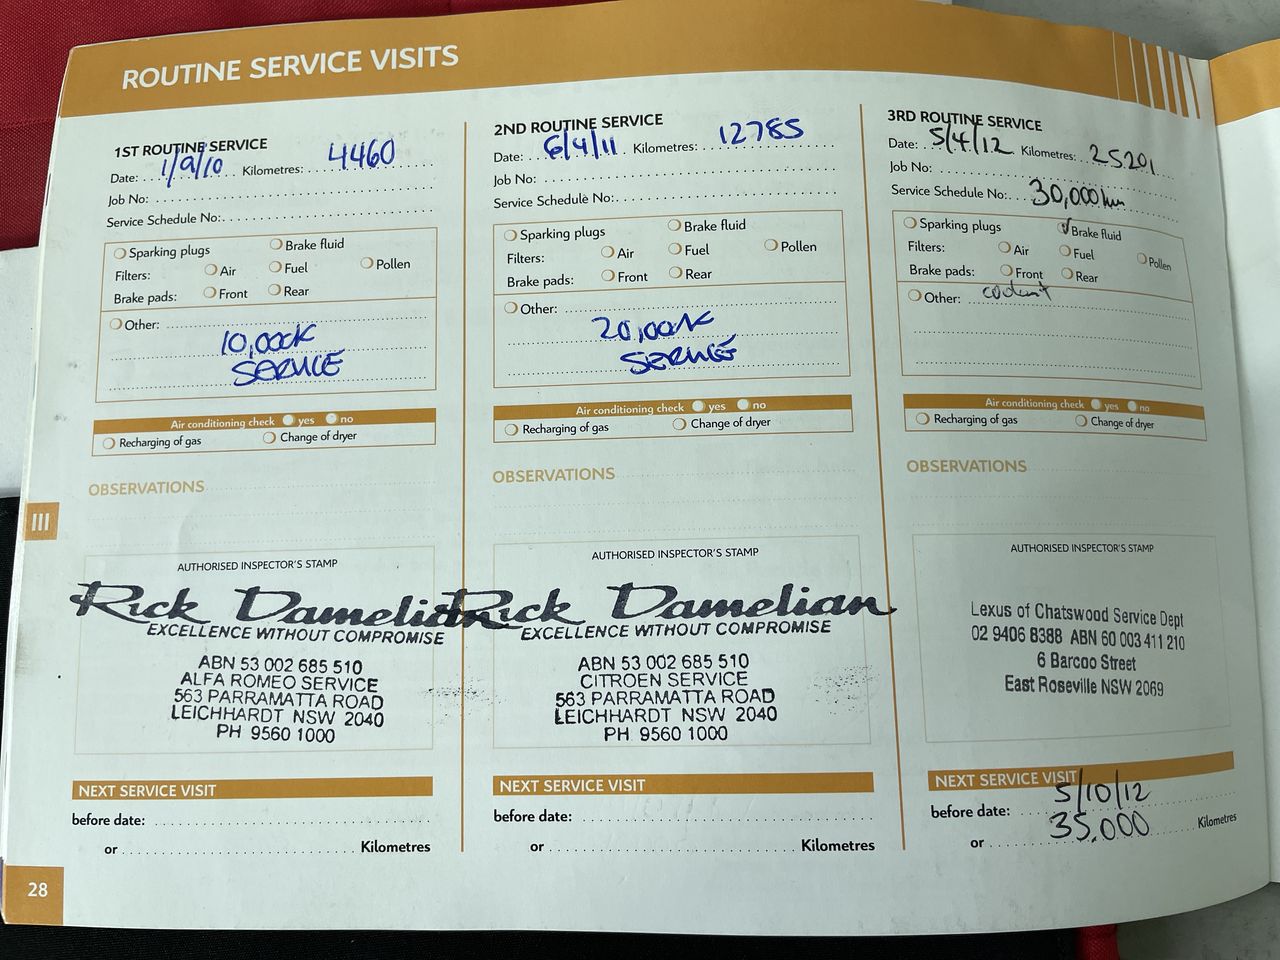 ROUTINE SERVICE VISITS
1ST ROUTINE SERVICE
Date: 1/9/10 Kilometres: 4460
Job No:
Service Schedule No:
Sparking plugs Brake fluid
Filters: Air Fuel Pollen
Brake pads: Front Rear
Other:
10,000K
SERVICE
Air conditioning check yes no
Recharging of gas Change of dryer
OBSERVATIONS
AUTHORISED INSPECTOR'S STAMP
Rick Damelian
EXCELLENCE WITHOUT COMPROMISE
ABN 53 002 685 510
ALFA ROMEO SERVICE
563 PARRAMATTA ROAD
LEICHHARDT NSW 2040
PH 9560 1000
NEXT SERVICE VISIT
before date:
or Kilometres
2ND ROUTINE SERVICE
Date: 6/4/11 Kilometres: 12785
Job No:
Service Schedule No:
Sparking plugs Brake fluid
Filters: Air Fuel Pollen
Brake pads: Front Rear
Other:
20,000K
SERVICE
Air conditioning check yes no
Recharging of gas Change of dryer
OBSERVATIONS
AUTHORISED INSPECTOR'S STAMP
Rick Damelian
EXCELLENCE WITHOUT COMPROMISE
ABN 53 002 685 510
CITROEN SERVICE
563 PARRAMATTA ROAD
LEICHHARDT NSW 2040
PH 9560 1000
NEXT SERVICE VISIT
before date:
or Kilometres
3RD ROUTINE SERVICE
Date: 5/4/12 Kilometres: 25201
Job No:
Service Schedule No: 30,000km
Sparking plugs Brake fluid
Filters: Air Fuel Pollen
Brake pads: Front Rear
Other:
Air conditioning check yes no
Recharging of gas Change of dryer
OBSERVATIONS
AUTHORISED INSPECTOR'S STAMP
Lexus of Chatswood Service Dept
02 9406 8388 ABN 60 003 411 210
6 Barcoo Street
East Roseville NSW 2069
NEXT SERVICE VISIT
before date: 5/10/12
or 35,000 Kilometres
III
28